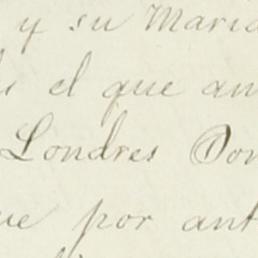 y su Marid
el que an
Londres Don
ue por ant